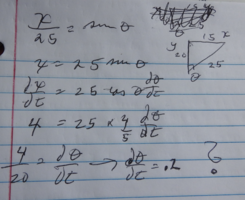 x/25 = sin θ
x = 25 sin θ
dx/dt = 25 cos θ dθ/dt
4 = 25 × 4/5 dθ/dt
4/20 = dθ/dt → dθ/dt = .2 ?
15 x
y
20
25
θ